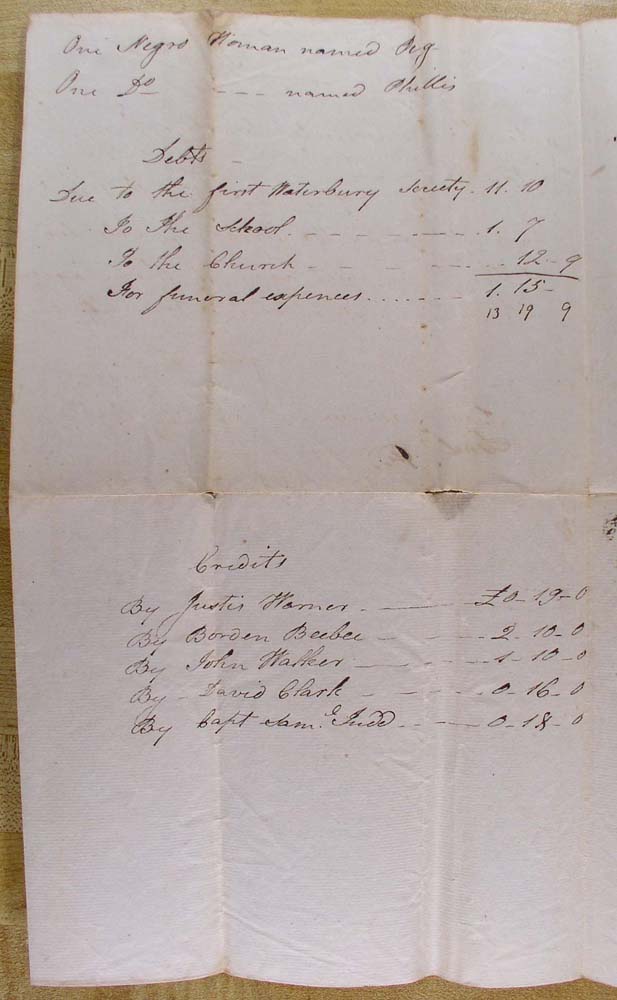 One Negro Woman named Peg
One Do - - - named Phillis
Debts -
Due to the first Waterbury Society. 11. 10
To the School. - - - - - 1. 7
To the Church - - - - - 12 - 9
For funeral expences . . . . . - - 1. 15 -
13 19 9
Credits
By Justis Warner - —— £0 - 19 - 0
By Borden Beebee —— 2 - 10 - 0
By John Walker - —— 1 - 10 - 0
By - David Clark - - —— 0 - 16 - 0
By Capt Saml. Judd - - —— 0 - 18 - 0